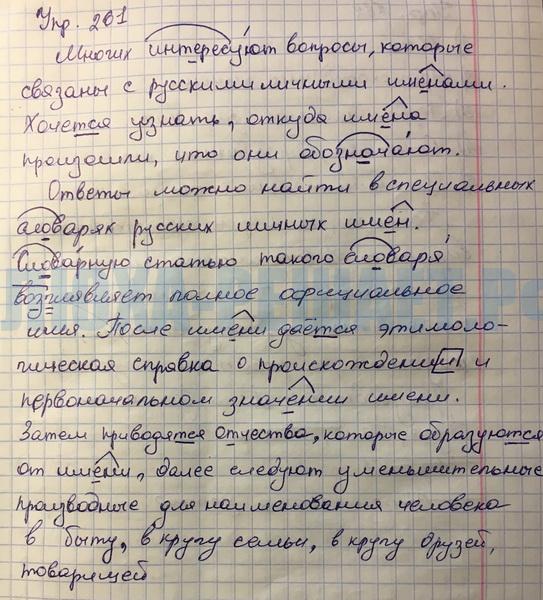 Упр. 261
Многих интересуют вопросы, которые
связаны с русскими личными именами.
Хочется узнать, откуда имена
произошли, что они обозначают.
Ответы можно найти в специальных
словарях русских личных имен.
Словарную статью такого словаря
возглавляет полное официальное
имя. После имени даётся этимоло-
гическая справка о происхождении и
первоначальном значении имени.
Затем приводятся отчества, которые образуются
от имени, далее следуют уменьшительные
производные для наименования человека
в быту, в кругу семьи, в кругу друзей,
товарищей